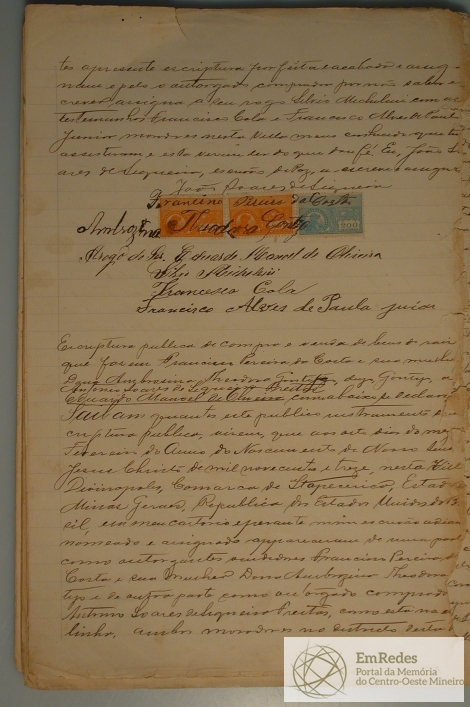 tes apresente escriptura por feita e acabada e assig-
nam e pelo o autorgado comprador por não saber es-
crever, assigna a seu rogo Silvio Michelini com as
testemunhas Francisco Cola e Francisco Alves de Paula
Junior, moradores nesta Villa meus conhecidos que a tu
assistiram e esta vi ler do que dou fé. Eu, João So-
ares de Siqueira, escrivão de Paz, a escrevi e assignei
João Soares de Siqueira
Francisco Pereira da Costa
Ambrozina Theodora Gontijo
Arogo do Sr. Eduardo Manoel de Oliveira
Silvio Michelini
Francesco Cola
Francisco Alves de Paula Junior
Escriptura publica de compra e venda de bens de raiz
que fazem Francisco Pereira da Costa e sua mulher
Dona Ambrosina Theodora Gontijo, digo, Gontijo, a
Antonio Soares de Siqueira Freitas
Eduardo Manoel de Oliveira, como abaixo, se declara
Saibam quantos este publico instrumento de es-
criptura publica, virem, que aos oito dias do mez
Fevereiro do Anno do Nascimento de Nosso Senh
Jesus Christo de mil novecentos e treze, nesta Villa
Divinopolis, Comarca de Itapecerica, Estado
Minas Geraes, Republica dos Estados Unidos do B
sil, em meu cartorio e perante mim escrivão abaixo
nomeado e assignado appareceram de uma part
como autorgantes vendedores Francisco Pereira da
Costa e sua mulher Dona Ambrozina Theodora
tijo e de outra parte como autorgado comprado
Antonio Soares de Siqueira Freitas, como esta na e
linha, ambos moradores no districto desta
EmRedes
Portal da Memória
do Centro-Oeste Mineiro